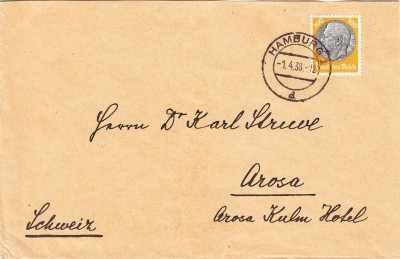 100 100
Deutsches Reich
HAMBURG
-1.4.38.-12
d
Herrn Dr Karl Struve
Arosa
Arosa Kulm Hotel
Schweiz